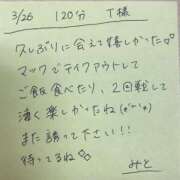 3/26 120分 T様
久しぶりに会えて嬉しかった♡
マックでテイクアウトして
ご飯食べたり、2回戦して
凄く楽しかったね(*^^*)
また誘って下さい!!
待ってるね
みと